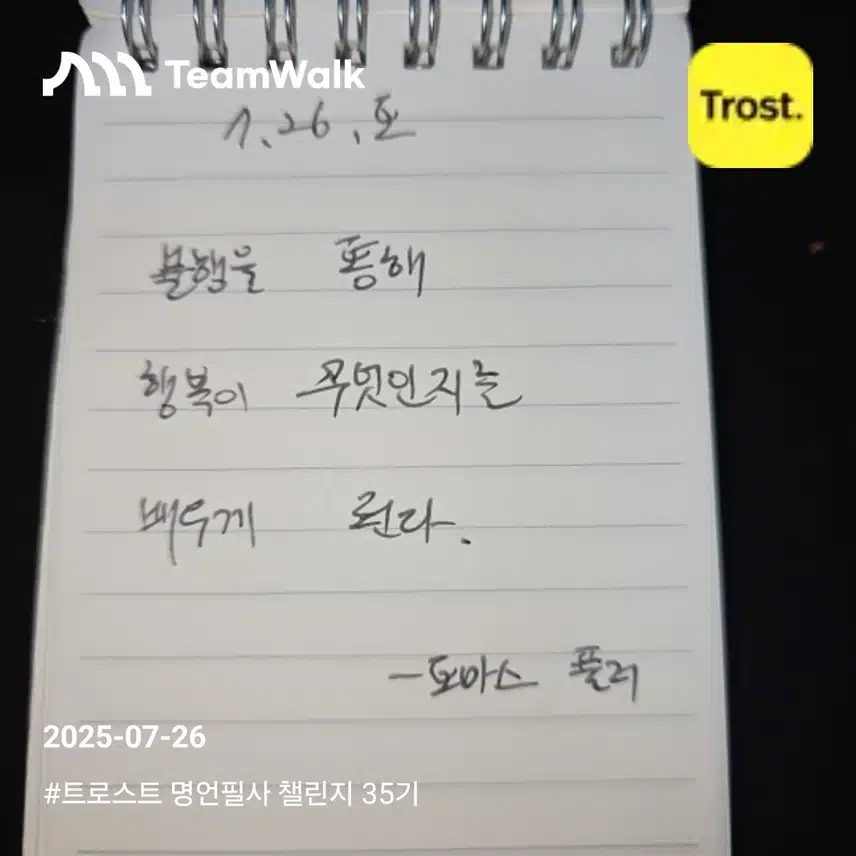 TeamWalk
Trost.
7.26.토
불행을 통해
행복이 무엇인지를
배우게 된다.
-토마스 풀러
2025-07-26
#트로스트 명언필사 챌린지 35기